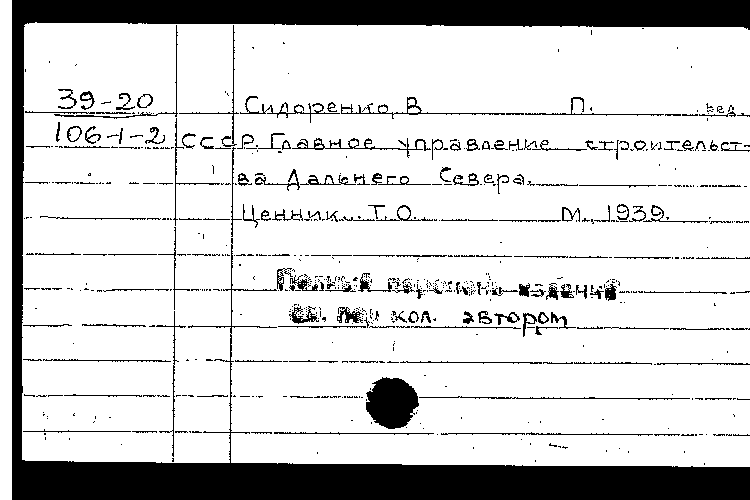 39-20 Сидоренко, В П. ред.
106-1-2 СССР. Главное управление строительст-
ва Дальнего Севера.
Ценник... Т.О. М., 1939.
Полный перечень изданий
см. под кол. автором